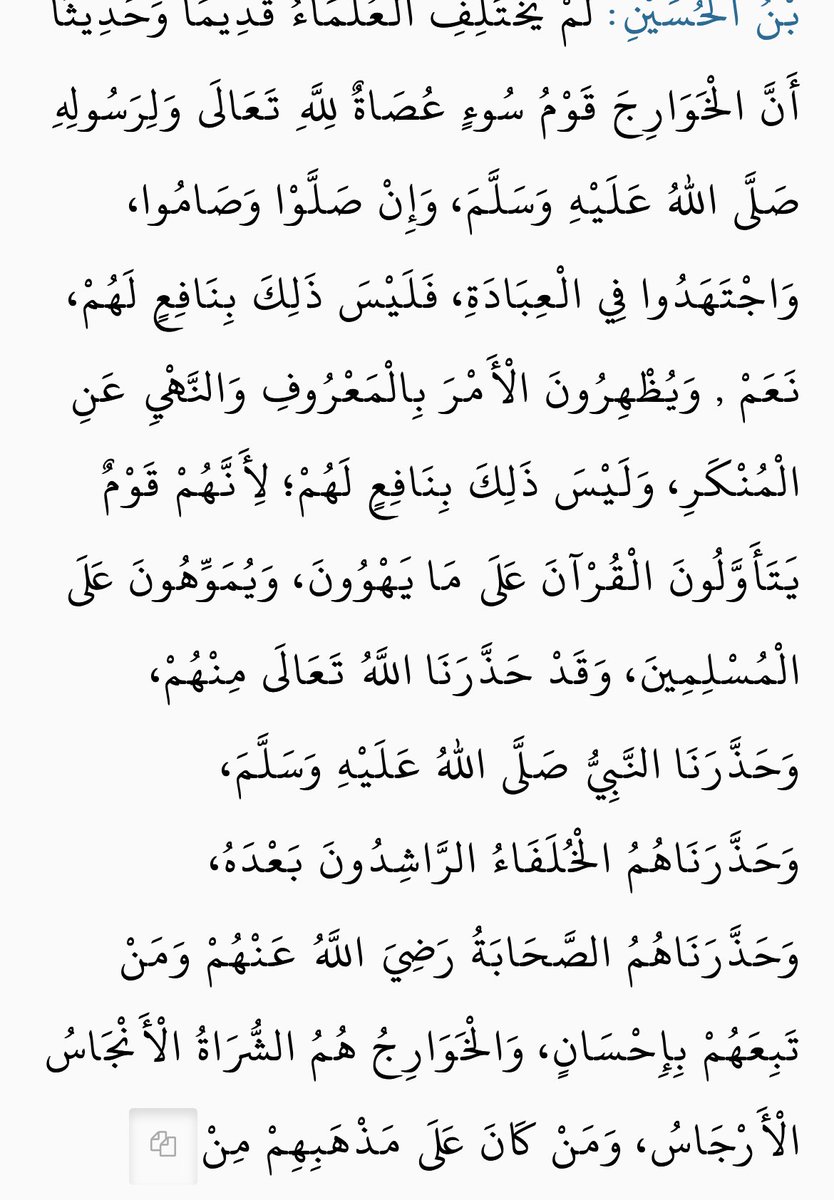 بْنُ الْحُسَيْنِ: لَمْ يَخْتَلِفِ الْعُلَمَاءُ قَدِيمًا وَحَدِيثًا
أَنَّ الْخَوَارِجَ قَوْمُ سُوءٍ عُصَاةٌ لِلَّهِ تَعَالَى وَلِرَسُولِهِ
صَلَّى اللهُ عَلَيْهِ وَسَلَّمَ، وَإِنْ صَلَّوْا وَصَامُوا،
وَاجْتَهَدُوا فِي الْعِبَادَةِ، فَلَيْسَ ذَلِكَ بِنَافِعٍ لَهُمْ،
نَعَمْ , وَيُظْهِرُونَ الْأَمْرَ بِالْمَعْرُوفِ وَالنَّهْيِ عَنِ
الْمُنْكَرِ، وَلَيْسَ ذَلِكَ بِنَافِعٍ لَهُمْ؛ لِأَنَّهُمْ قَوْمٌ
يَتَأَوَّلُونَ الْقُرْآنَ عَلَى مَا يَهْوُونَ، وَيُمَوِّهُونَ عَلَى
الْمُسْلِمِينَ، وَقَدْ حَذَّرَنَا اللَّهُ تَعَالَى مِنْهُمْ،
وَحَذَّرَنَا النَّبِيُّ صَلَّى اللهُ عَلَيْهِ وَسَلَّمَ،
وَحَذَّرَنَاهُمُ الْخُلَفَاءُ الرَّاشِدُونَ بَعْدَهُ،
وَحَذَّرَنَاهُمُ الصَّحَابَةُ رَضِيَ اللَّهُ عَنْهُمْ وَمَنْ
تَبِعَهُمْ بِإِحْسَانٍ، وَالْخَوَارِجُ هُمُ الشُّرَاةُ الْأَنْجَاسُ
الْأَرْجَاسُ، وَمَنْ كَانَ عَلَى مَذْهَبِهِمْ مِنْ